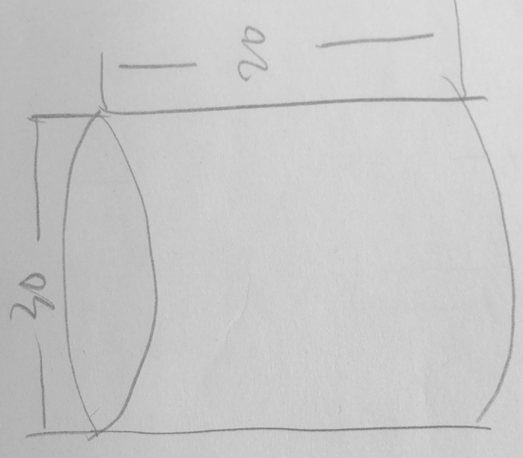 20
30